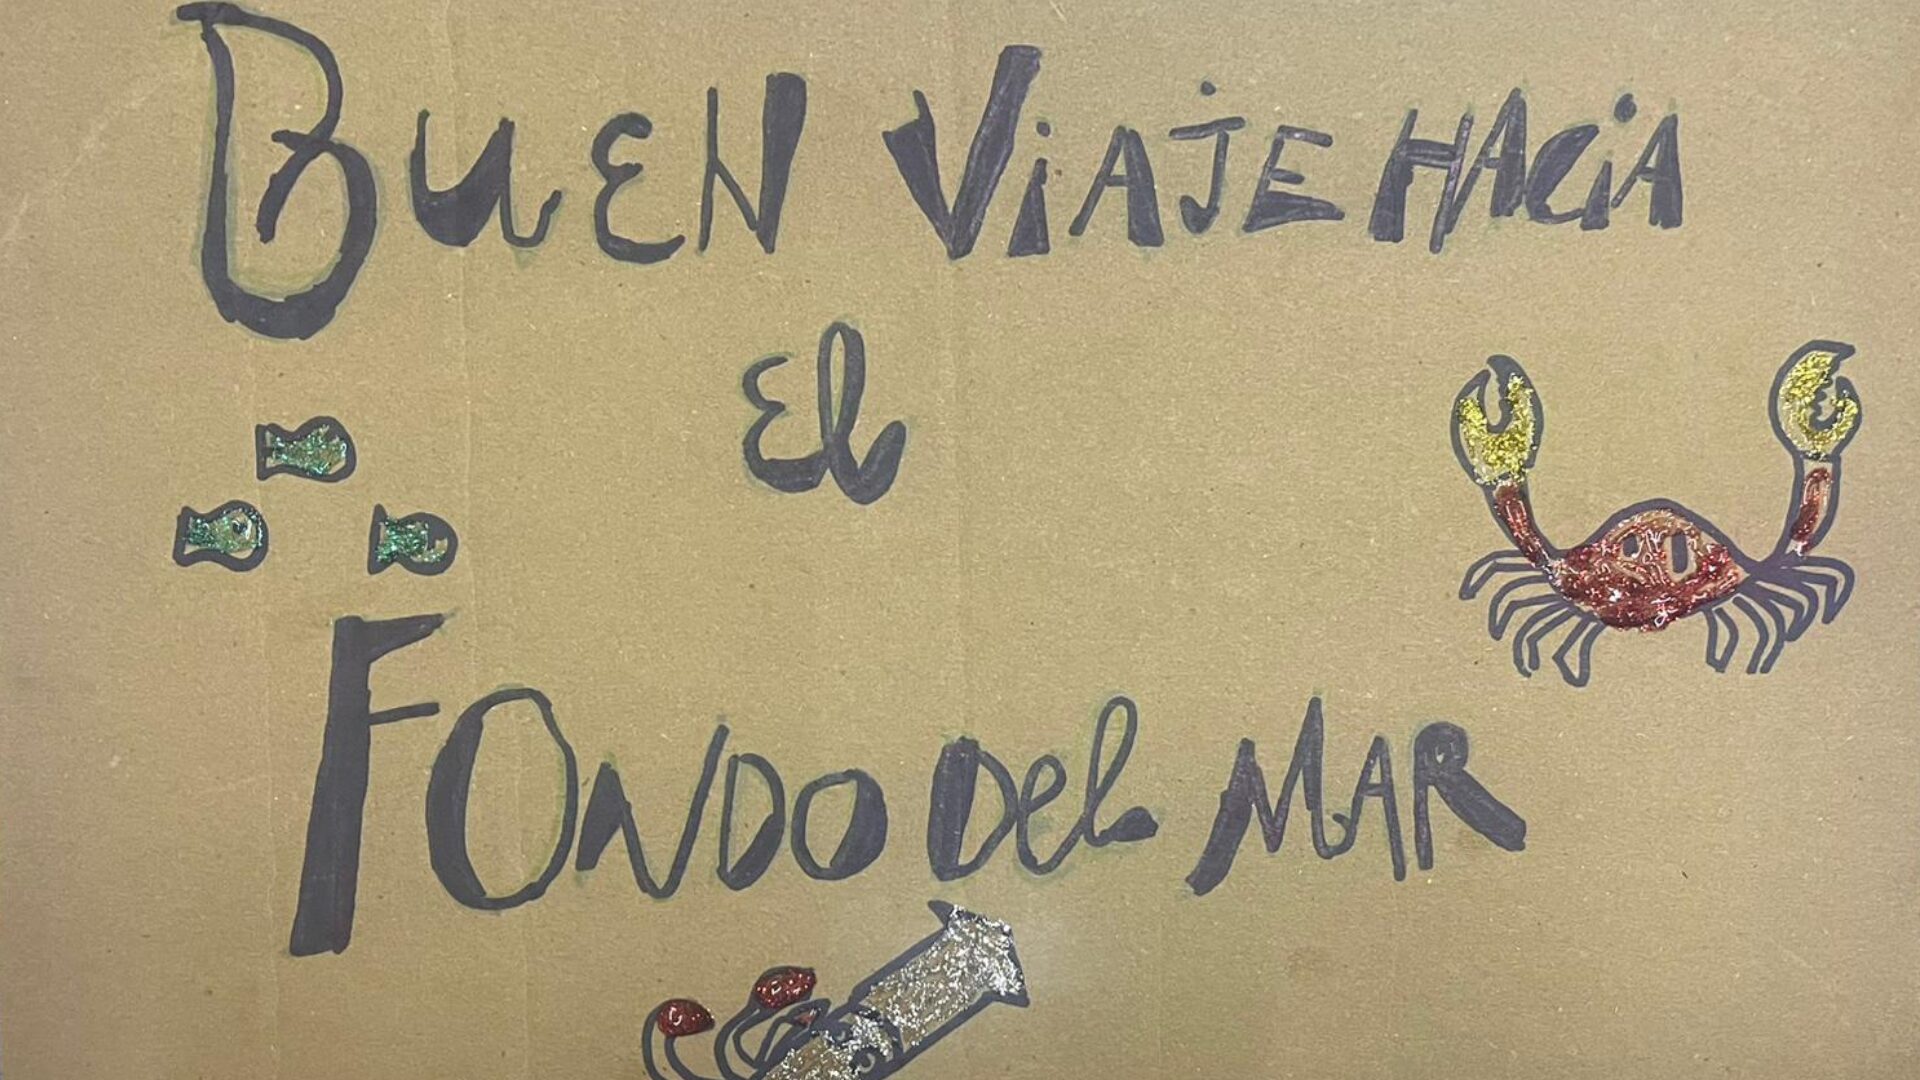 BuEN ViAJE HACiA
El
FONDO Del MAR